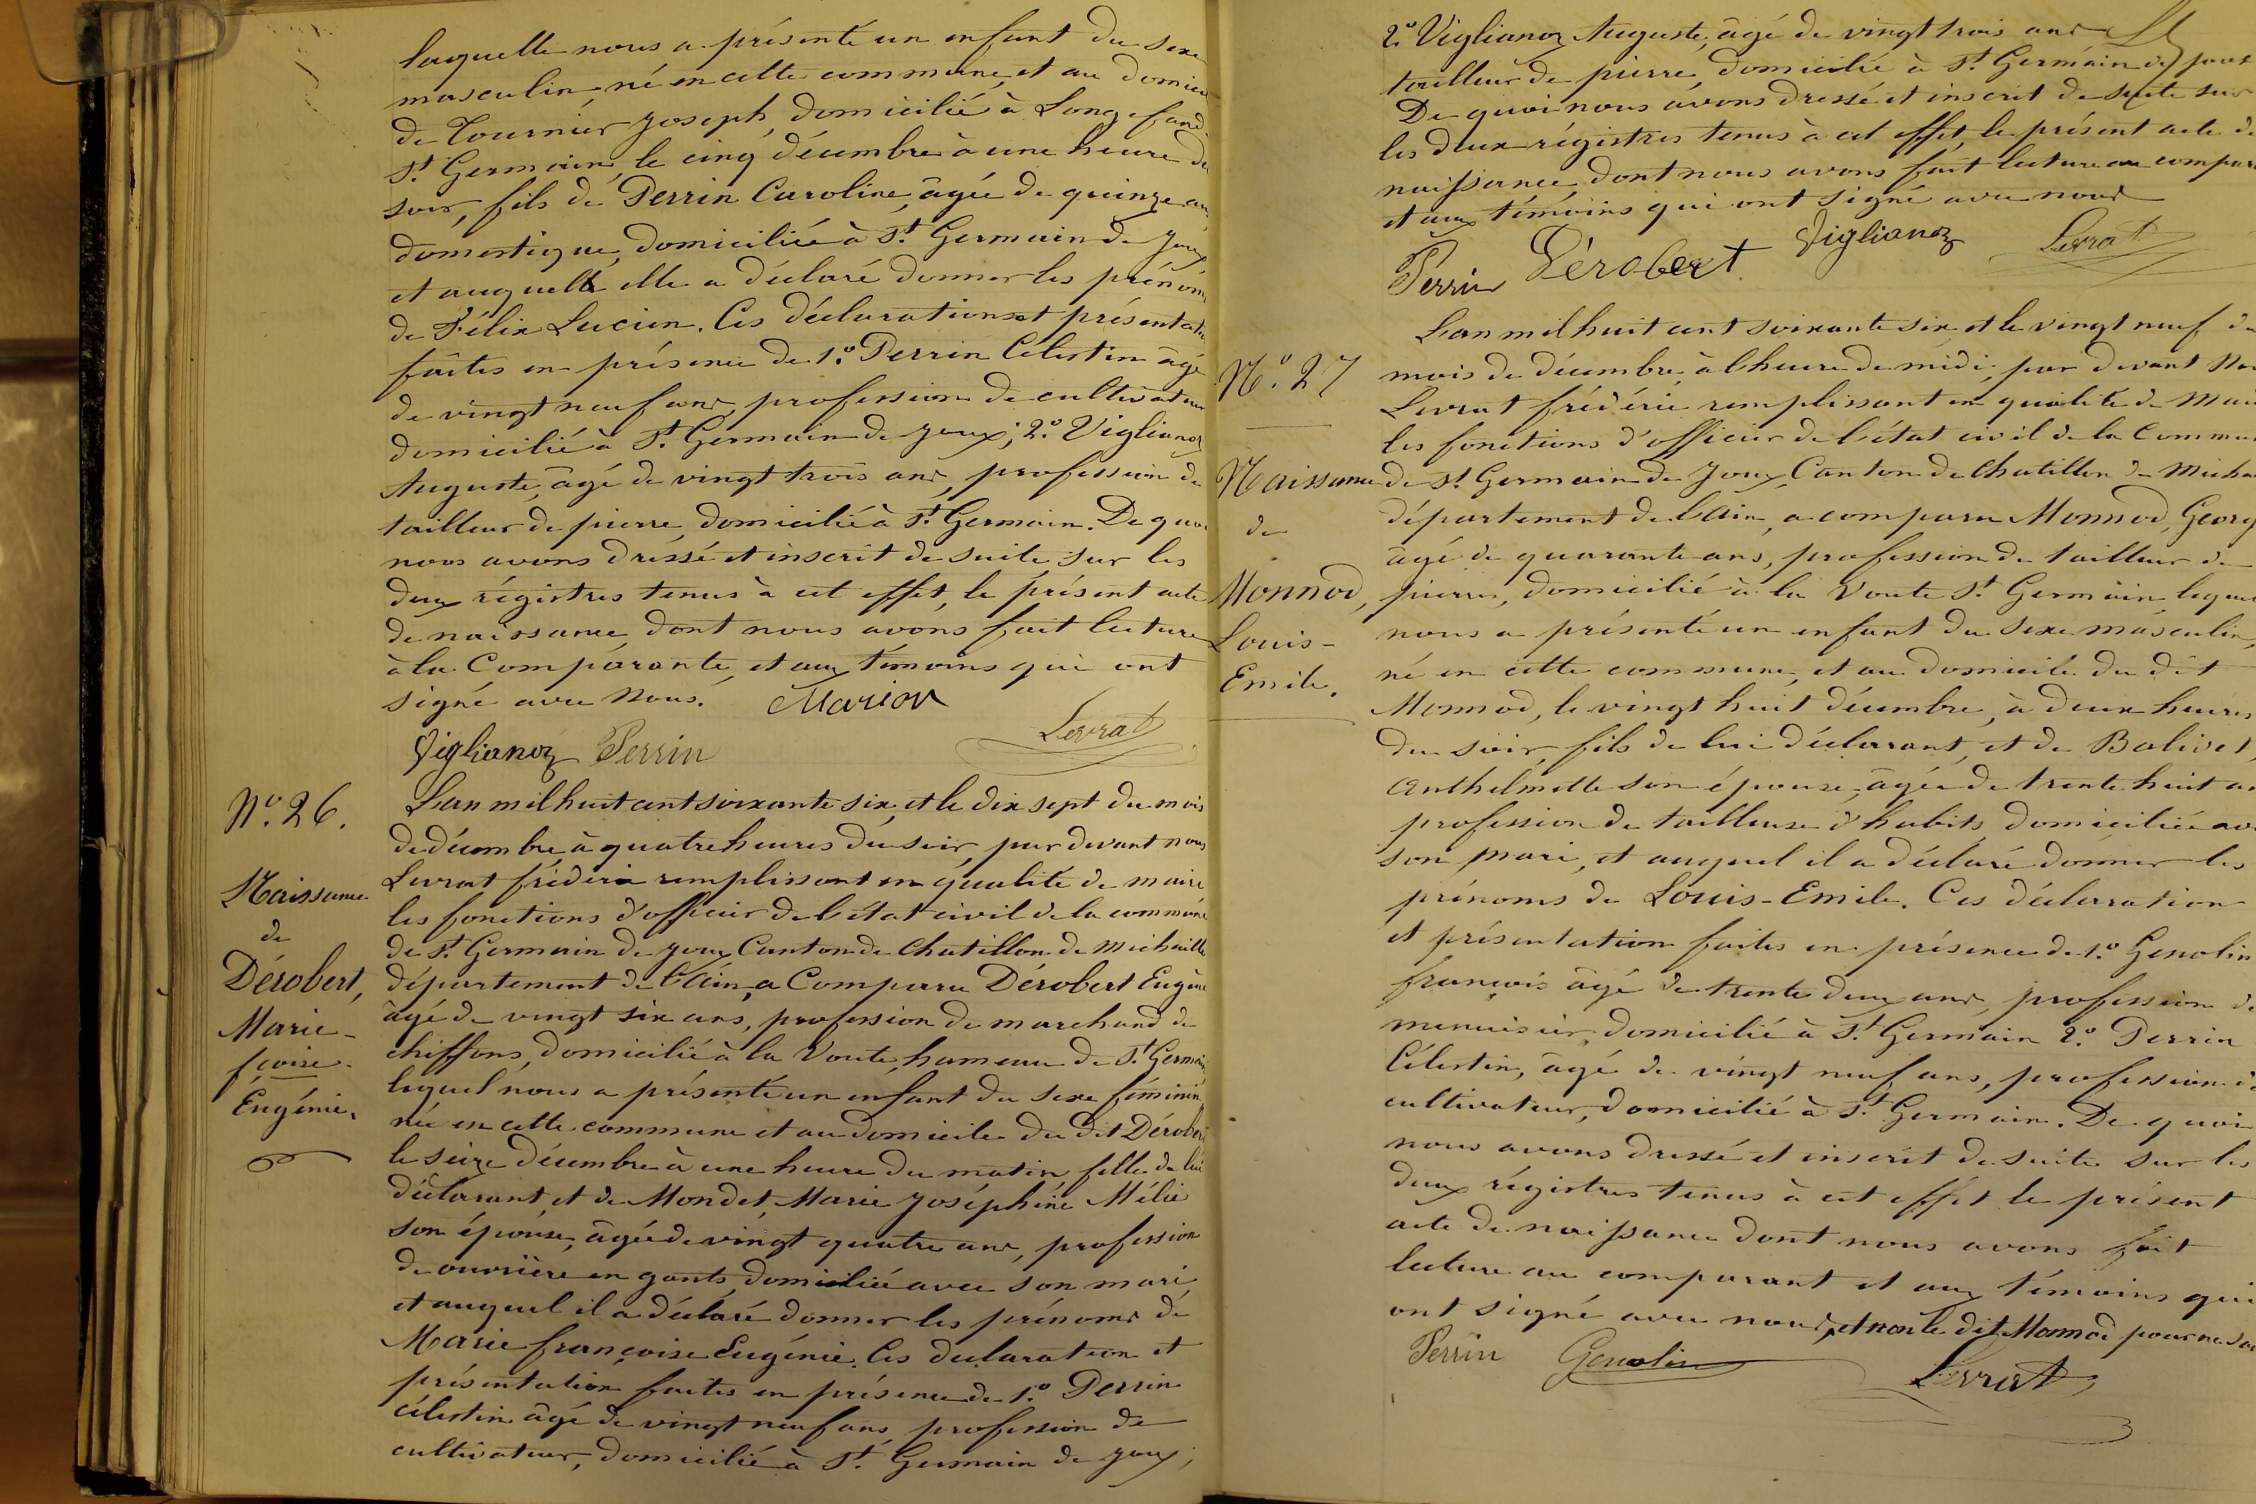 laquelle nous a présenté un enfant du sexe
masculin, né en cette commune, et au domici
de Tournier Joseph, domicilié à Longefand
St. Germain, le cinq décembre à une heure du
soir, fils de Perrin Caroline, âgée de quinze ans,
domestique, domiciliée à St. Germain de Joux
et auquel elle a déclaré donner les prénoms
de Félix Lucien. Ces déclarations et présentation
faites en présence de 1.° Perrin Célestin âgé
de vingt neuf ans, profession de cultivateur
domicilié à St. Germain de Joux; 2.° Viglianoz
Auguste, âgé de vingt trois ans, profession de
tailleur de pierre, domicilié à St. Germain. De quoi
nous avons dressé et inscrit de suite sur les
deux régistres tenus à cet effet, le présent acte
de naissance, dont nous avons fait lecture
à la Comparante, et aux témoins qui ont
signé avec nous. Marion
Levrat
Viglianoz Perrin
N.° 26.
Naissance
de
Dérobert,
Marie-
fçoise-
Eugénie.
L'an mil huit cent soixante six, et le dix sept du mois
de décembre à quatre heures du soir, par devant nous
Levrat frédéric remplissant en qualité de maire
les fonctions d'officier de l'état civil de la commune
de St. Germain de Joux Canton de Chatillon de Michaille
département de l'Ain, a Comparu Dérobert Eugène
âgé de vingt six ans, profession de marchand de
chiffons, domicilié à la Voute, hameau de St. Germain
lequel nous a présenté un enfant du sexe féminin,
née en cette commune et au domicile du dit Dérobert
le seize décembre à une heure du matin, fille de lui
déclarant, et de Mondet, Marie Joséphine Mélie
son épouse, âgée de vingt quatre ans, profession
de ouvrière en gants, domiciliée avec son mari
et auquel il a déclaré donner les prénoms de
Marie françoise Eugénie. Ces déclaration et
présentation faites en présence de 1.° Perrin
célestin âgé de vingt neuf ans profession de
cultivateur, domicilié à St. Germain de Joux;
2.° Viglianoz Auguste, âgé de vingt trois ans
tailleur de pierre, domicilié à St. Germain de Joux
De quoi nous avons dressé et inscrit de suite sur
les deux régistres tenus à cet effet, le présent acte de
naissance, dont nous avons fait lecture au compar
et aux témoins qui ont signé avec nous
Perrin Dérobert Viglianoz Levrat
N.° 27
Naissance
de
Monnod,
Louis-
Emile.
L'an mil huit cent soixante six, et le vingt neuf du
mois de décembre, à l'heure de midi, par devant Nou
Levrat frédéric remplissant en qualité de Mai
les fonctions d'officier de l'état civil de la Commun
de St. Germain de Joux, Canton de Chatillon de Micha
département de l'Ain, a comparu Monnod, Georg
âgé de quarante ans, profession de tailleur de
pierres, domicilié à la Voute St. Germain leque
nous a présenté un enfant du sexe masculin,
né en cette commune, et au domicile du dit
Monnod, le vingt huit décembre, à deux heures
du soir, fils de lui déclarant, et de Bolivet,
Anthelmette son épouse, âgée de trente huit an
profession de tailleuse d'habits, domiciliée ave
son mari, et auquel il a déclaré donner les
prénoms de Louis-Emile. Ces déclaration
et présentation faites en présence de 1.° Genolin
françois âgé de trente deux ans, profession de
menuisier, domicilié à St. Germain 2.° Perrin
Célestin, âgé de vingt neuf ans, profession de
cultivateur, domicilié à St. Germain. De quoi
nous avons dressé et inscrit de suite sur les
deux régistres tenus à cet effet le présent
acte de naissance dont nous avons fait
lecture au comparant et aux témoins qui
ont signé avec nous, et non le dit Monnod pour ne sav
Perrin Genolin Levrat